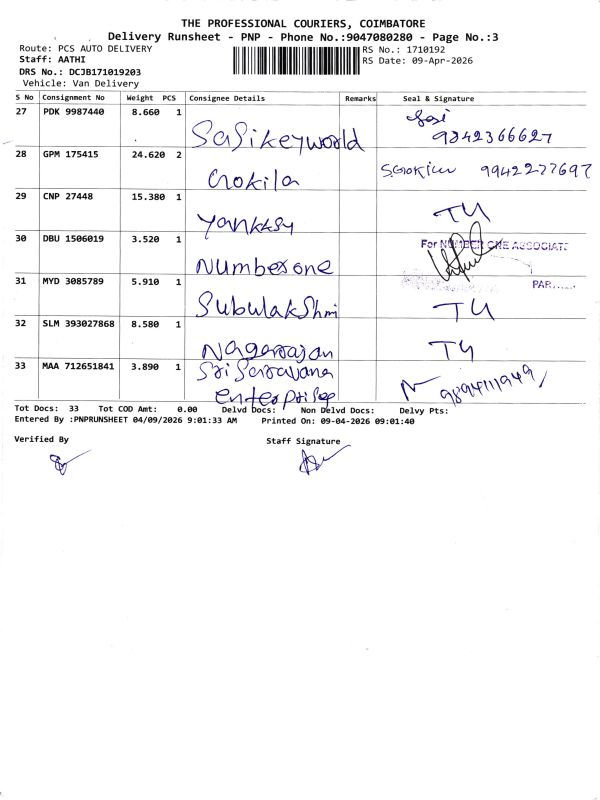 THE PROFESSIONAL COURIERS, COIMBATORE
Delivery Runsheet - PNP - Phone No.:9047080280 - Page No.:3
Route: PCS AUTO DELIVERY
RS No.: 1710192
Staff: AATHI
RS Date: 09-Apr-2026
DRS No.: DCJB171019203
Vehicle: Van Delivery
S No Consignment No Weight PCS Consignee Details Remarks Seal & Signature
27 PDK 9987440 8.660 1 Sasikeyworld 9842366627
28 GPM 175415 24.620 2 Gokila 9942277697
29 CNP 27448 15.380 1 Yankksy TU
30 DBU 1506019 3.520 1 Numberone For NUMBER ONE ASSOCIATE
31 MYD 3085789 5.910 1 Subulakshmi PAR...... TU
32 SLM 393027868 8.580 1 Nagarajan TU
33 MAA 712651841 3.890 1 Sri Saravana
enterprises 9894111949
Tot Docs: 33 Tot COD Amt: 0.00 Delvd Docs: Non Delvd Docs: Delvy Pts:
Entered By :PNPRUNSHEET 04/09/2026 9:01:33 AM Printed On: 09-04-2026 09:01:40
Verified By
Staff Signature